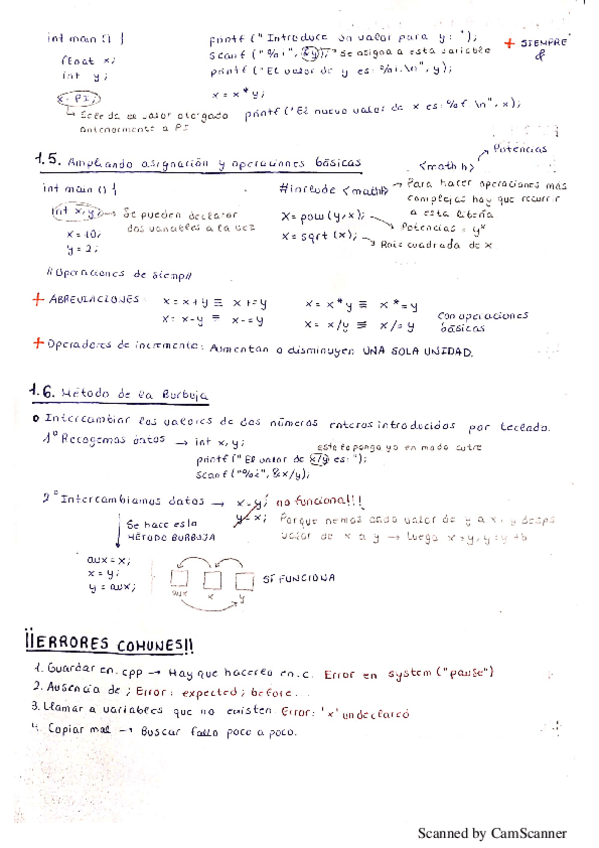 int main () {
float x;
int y;
x = PI;
Se le da el valor otorgado
anteriormente a PI
printf ("Introduce un valor para y: ");
scanf ("%i", &y); Se asigna a esta variable
+ SIEMPRE &
printf ("El valor de y es: %i.\n", y);
x = x * y;
printf ("El nuevo valor de x es: %f \n", x);
1.5. Ampliando asignación y operaciones básicas
int main () {
int x, y; → Se pueden declarar
dos variables a la vez
x = 10;
y = 2;
//Operaciones de siemp//
Potencias
<math h>
#include <math> → Para hacer operaciones más
complejas hay que recurrir
a esta libería
x = pow (y, x); → Potencias = yˣ
x = sqrt (x); → Raíz cuadrada de x
+ ABREVIACIONES x = x + y ≡ x += y x = x * y ≡ x *= y
x = x - y ≡ x -= y x = x / y ≡ x /= y
Con operaciones
básicas
+ Operadores de incremento: Aumentan o disminuyen UNA SOLA UNIDAD.
1.6. Método de la Burbuja
o Intercambiar los valores de dos números enteros introducidos por teclado.
1º Recogemos datos → int x, y;
este lo pongo yo en modo cutre
printf ("El valor de x/y es: ");
scanf ("%i", &x/y);
2º Intercambiamos datos → x = y; no funciona!!!
y = x; Porque
valor de y a x, y
valor de x a y → luego
Se hace es la
MÉTODO BURBUJA
aux = x;
x = y;
y = aux;
aux x y
SÍ FUNCIONA
¡¡ERRORES COMUNES!!
1. Guardar en .cpp → Hay que hacerlo en .c. Error en system ("pause")
2. Ausencia de ; Error: expected ; before...
3. Llamar a variables que no existen Error: 'x' undeclared
4. Copiar mal → Buscar fallo poco a poco.
Scanned by CamScanner